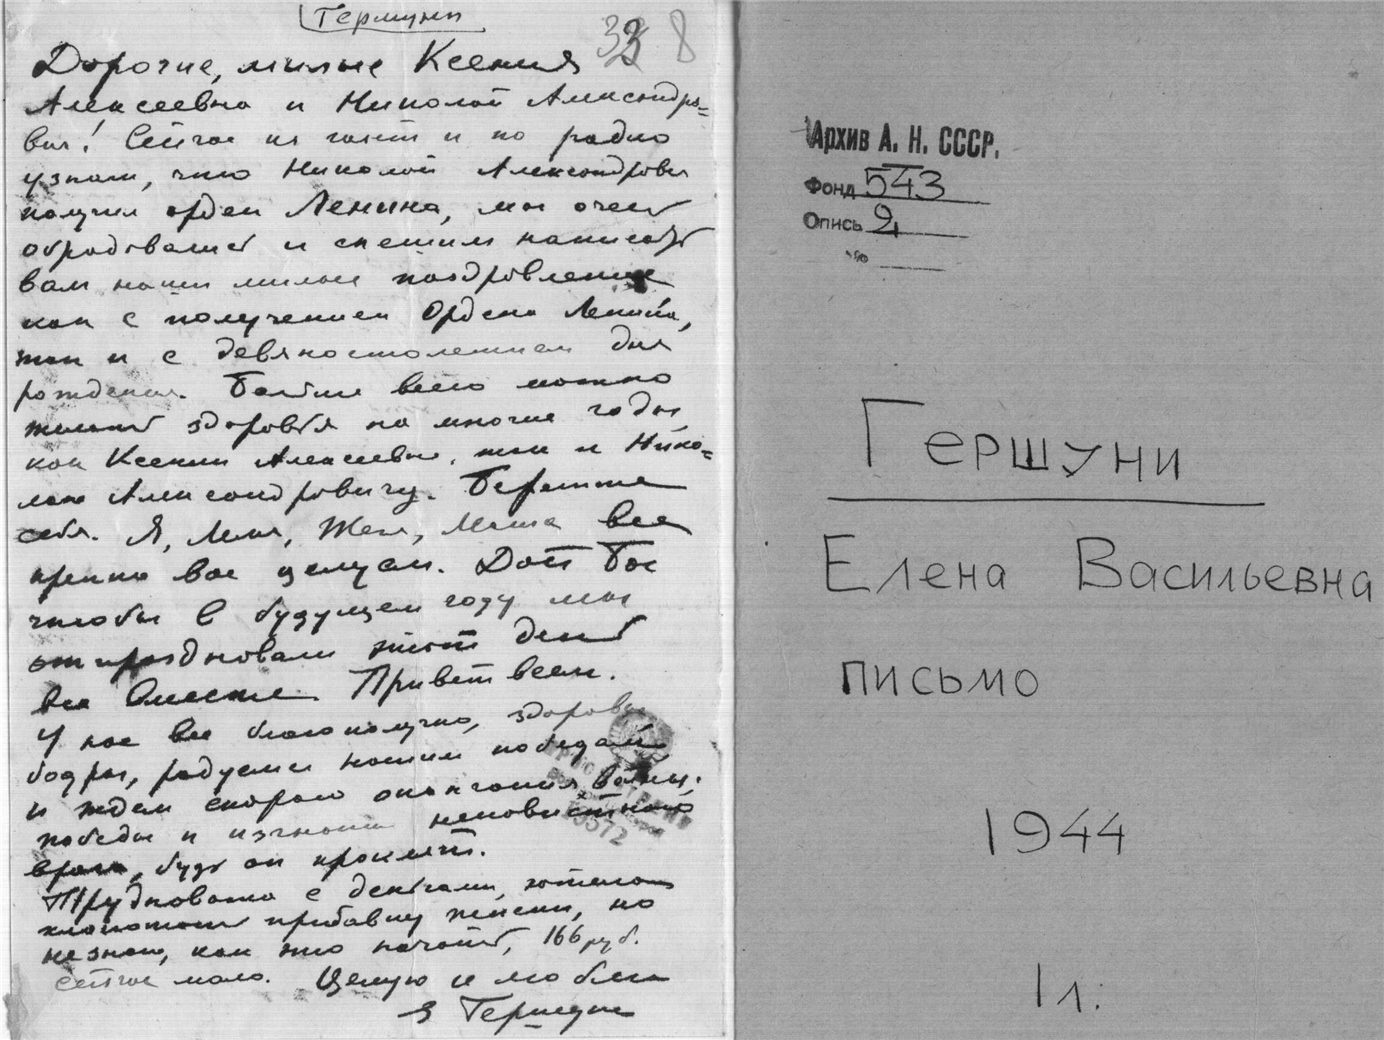 Гершуни
33 8
Дорогие, милые Ксения
Алексеевна и Николай Александро=
вич! Сейчас из газет и по радио
узнали, что Николай Александрович
получил орден Ленина, мы очень
обрадовались и спешим написать
вам наши милые поздравления
как с получением Ордена Ленина,
так и с девяностолетием дня
рождения. Больше всего можно
желать здоровья на многие годы
как Ксении Алексеевне, так и Нико=
лаю Александровичу. Берегите
себя. Я, Леля, Женя, Маша все
крепко вас целуем. Дай Бог
чтобы в будущем году мы
отпраздновали этот день
все вместе. Привет всем.
У нас все благополучно, здоровы
бодры, радуемся нашим победам
и ждем скорого окончания войны,
победы и изгнания ненавистного
врага, будь он проклят.
Трудновато с деньгами, хотела
хлопотать прибавку пенсии, но
не знаю, как это начать, 166 руб.
сейчас мало. Целую и люблю
Гершуни
Архив А. Н. СССР.
Фонд 543
Опись 2
№
Гершуни
Елена Васильевна
письмо
1944
1 л.